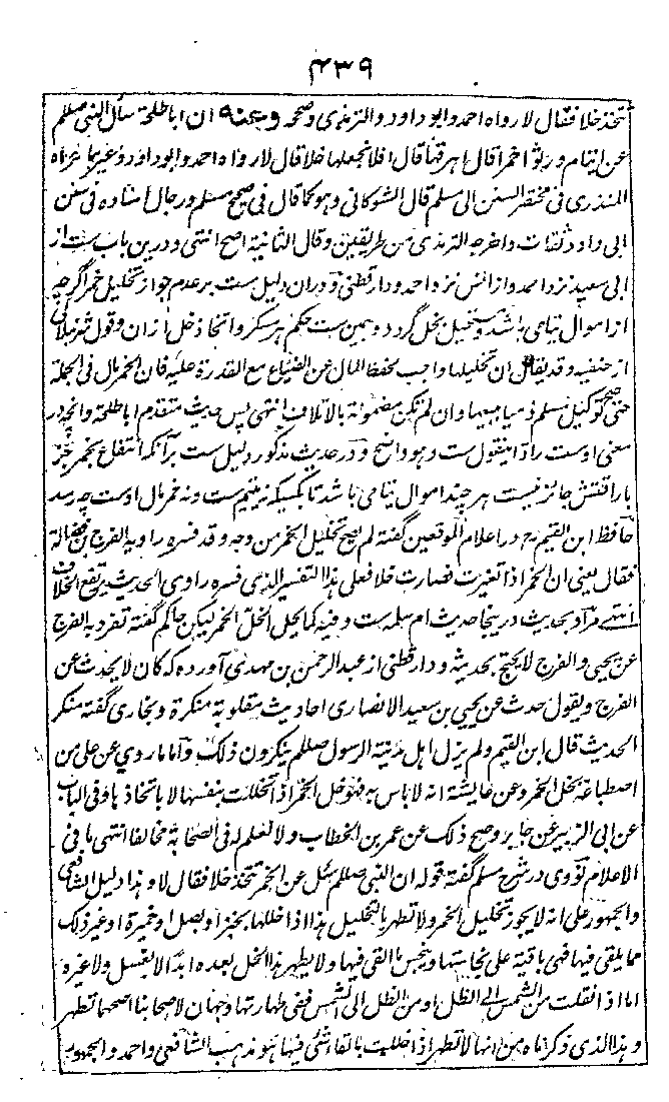 ۴۳۹
تتخذ خلا فقال لا رواه احمد وابو داود والترمذی وصححه وعنه ان ابا طلحة سأل النبی صللم
عن ایتام ورثوا خمرا قال اهرقها قال افلا نجعلها خلا قال لا رواه احمد وابو داود وغیرهما عزاه
المنذری فی مختصر السنن الی مسلم قال الشوکانی وهو کما قال فی صحیح مسلم ورجال اسناده فی سنن
ابی داود ثقات واخرجه الترمذی من طریقین وقال الثانیة اصح انتهی ودرین باب ست از
ابی سعید نزد احمد واز انس نزد احمد ودارقطنی ودران دلیل ست بر عدم جواز تخلیل خمر اگرچه
از اموال یتامی باشد ومستحیل بخل گردد وهمین ست حکم هر مسکر واتخاذ خل ازان وقول
از حنفیه وقد یقال ان تخلیلها واجب لحفظ المال عن الضیاع مع القدرة علیه فان الخمر مال فی الجملة
حتی صح توکیل مسلم ذمیا ببیعها وان لم تکن مضمونة بالاتلاف انتهی پس حدیث متقدم ابا طلحة وانچه در
معنی اوست راد اینقول ست وهو واضح ودر حدیث مذکور دلیل ست برآنکه انتفاع بخمر جز
باراقتش جائز نیست هر چند اموال یتامی باشد تا بکسیکه نه یتیم ست ونه خمر مال اوست چه رسد
حافظ ابن القیم رح در اعلام الموقعین گفته لم یصح تخلیل الخمر من وجه وقد فسره راویه الفرج بن فضالة
فقال یعنی ان الخمر اذا تغیرت فصارت خلا فعلی هذا التفسیر الذی فسره راوی الحدیث یرتفع الخلاف
انتهی مراد بحدیث درینجا حدیث ام سلمه ست وفیه کما یحل الخل الخمر لیکن حاکم گفته تفرد به الفرج
عن یحیی والفرج لا یحتج بحدیثه ودارقطنی از عبد الرحمن بن مهدی آورده که کان لا یحدث عن
الفرج ویقول حدث عن یحیی بن سعید الانصاری احادیث مقلوبة منکرة وبخاری گفته منکر
الحدیث قال ابن القیم ولم یزل اهل مدینة الرسول صللم ینکرون ذلک واما ما روی عن علی من
اصطباغه بخل الخمر وعن عایشة انه لا باس به فهو خل الخمر اذا تخللت بنفسها لا باتخاذها وفی الباب
عن ابی الزبیر عن جابر وصح ذلک عن عمر بن الخطاب ولا نعلم له فی الصحابة مخالفا انتهی ما فی
الاعلام نووی در شرح مسلم گفته قوله ان النبی صللم سئل عن الخمر تتخذ خلا فقال لا وهذا دلیل الشافعی
والجمهور علی انه لا یجوز تخلیل الخمر ولا تطهر بالتخلیل هذا اذا خللها بخبز او بصل او خمیرة او غیر ذلک
مما یلقی فیها فهی باقیة علی نجاستها وینجس ما القی فیها ولا یطهر هذا الخل بعده ابدا لا بغسل ولا غیره
اما اذا نقلت من الشمس الی الظل او من الظل الی الشمس ففی طهارتها وجهان لاصحابنا اصحهما تطهر
وهذا الذی ذکرناه من انها لا تطهر اذا خللت بالقاء شئ فیها هو مذهب الشافعی واحمد والجمهور